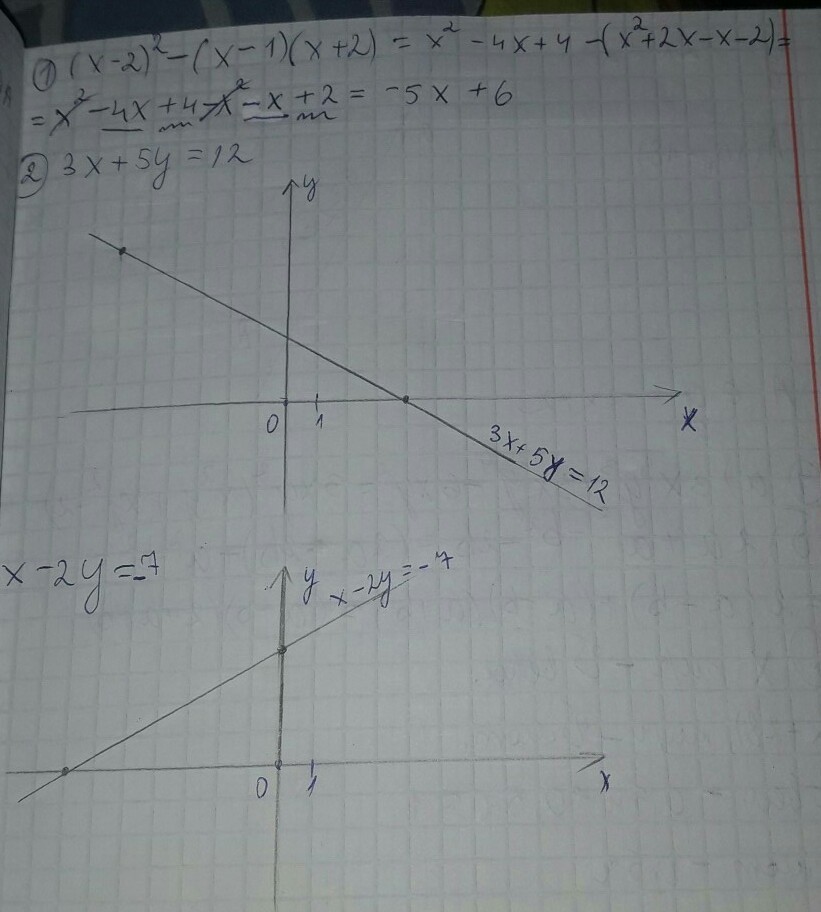 ① (x-2)² - (x-1)(x+2) = x² - 4x + 4 - (x² + 2x - x - 2) =
= x² - 4x + 4 - x² - x + 2 = -5x + 6
② 3x + 5y = 12
y
0 1
x
3x + 5y = 12
x - 2y = -7
y
x - 2y = -7
0 1
x